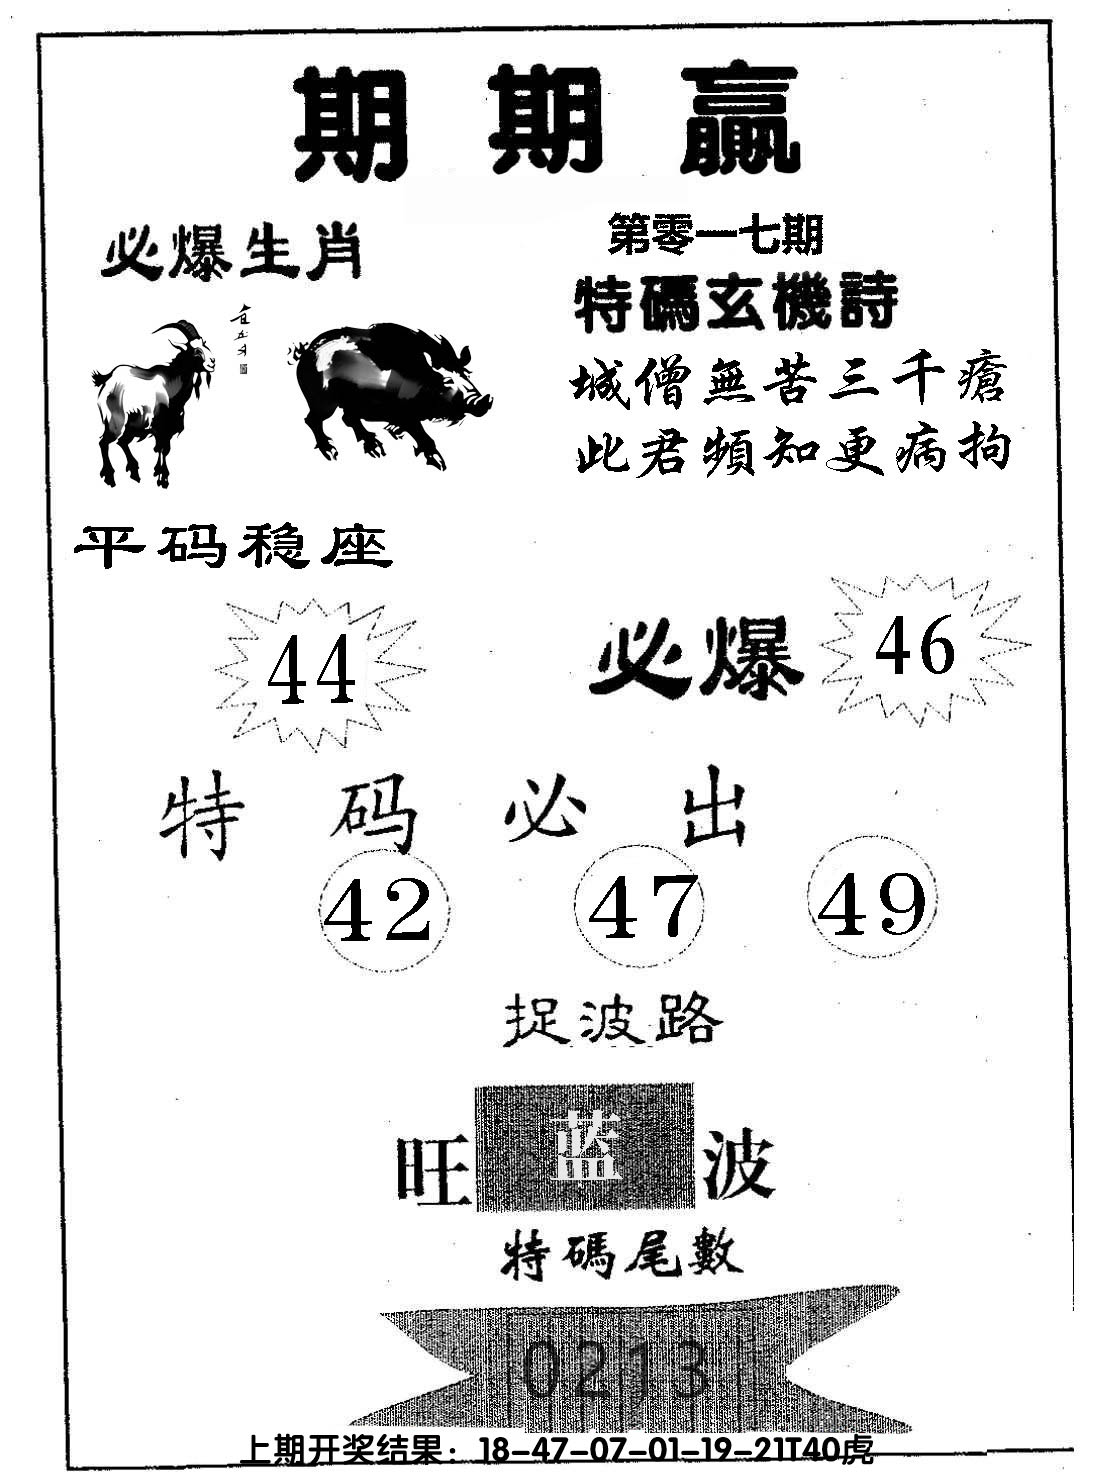 期期赢
必爆生肖
第零一七期
特碼玄機詩
城僧無苦三千瘡
此君頻知更病拘
平码稳座
44
必爆 46
特码必出
42 47 49
捉波路
旺 蓝 波
特碼尾數
0213
上期开奖结果：18-47-07-01-19-21T40虎